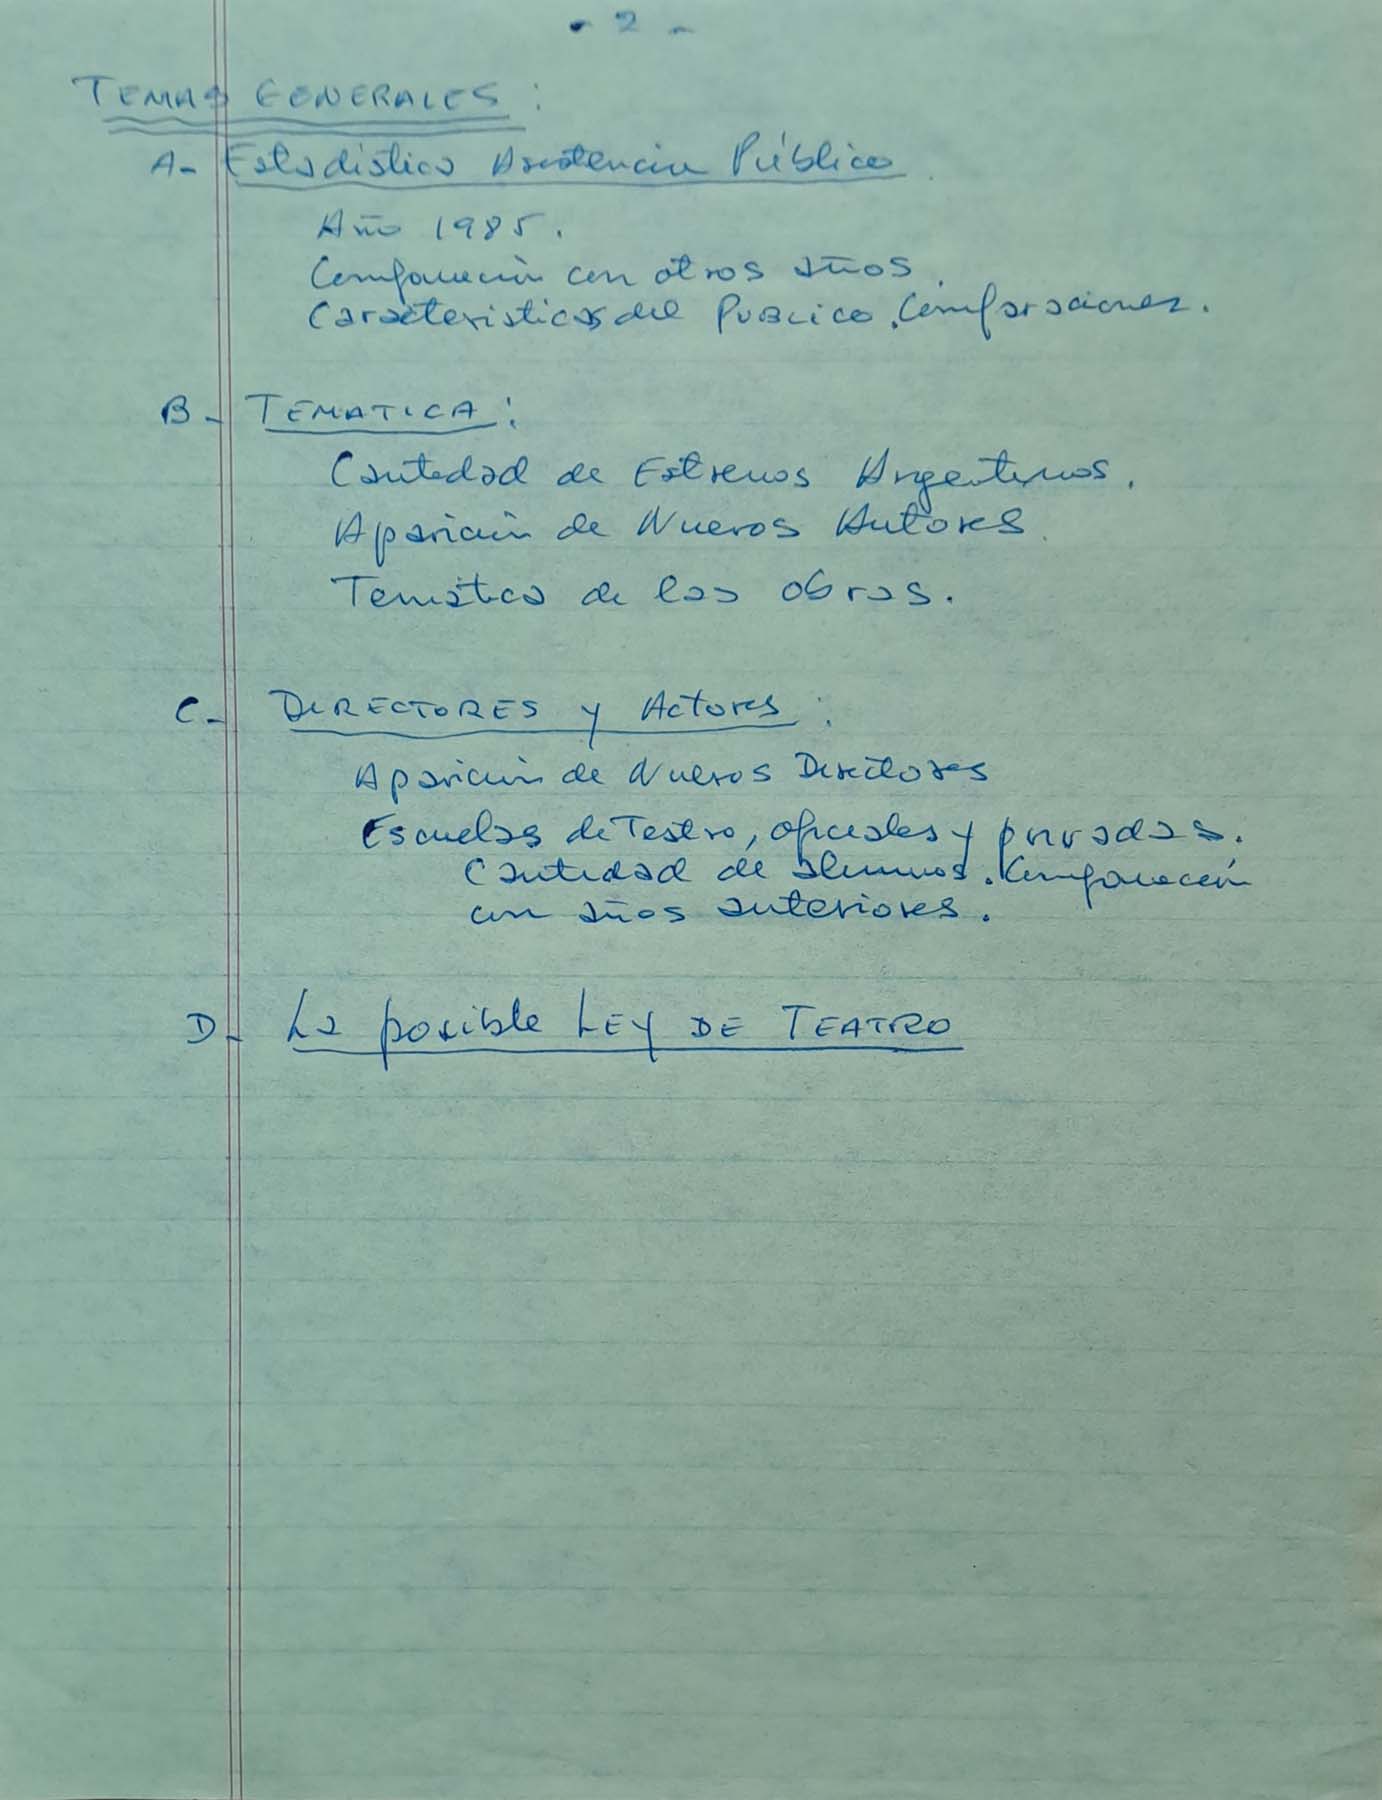 - 2 -
TEMAS GENERALES :
A- Estadística Asistencia Público.
Año 1985.
Comparación con otros años.
Caracteristicas del PUBLICO. Comparaciones.
B- TEMATICA :
Cantidad de Estrenos Argentinos.
Aparición de Nuevos Autores.
Temática de las obras.
C- DIRECTORES y Actores :
Aparición de Nuevos Directores
Escuelas de Teatro, oficiales y privadas.
Cantidad de alumnos. Comparación
con años anteriores.
D- La posible LEY DE TEATRO